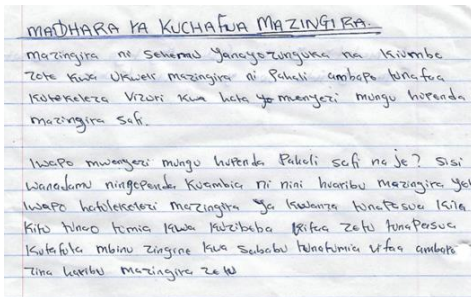 MADHARA YA KUCHAFUA MAZINGIRA.
mazingira ni sehemu yanayozunguka na kiumbe
zote kwa ukweli mazingira ni Pahali ambapo tunafaa
kutekeleza vizuri kwa hata ye mwenyezi mungu hupenda
mazingira safi.
Iwapo mwenyezi mungu hupenda Pahali safi na je? sisi
wanadamu ningependa kuambia ni nini huaribu mazingira
iwapo hatutekelezi mazingira ya kwanza tunapasua kila
kitu tunao tumia kuwa kuzibaba vifaa zetu tunapasua
kutafuta mbinu zingine kwa sababu tunatumia vifaa ambazo
zina haribu mazingira zetu